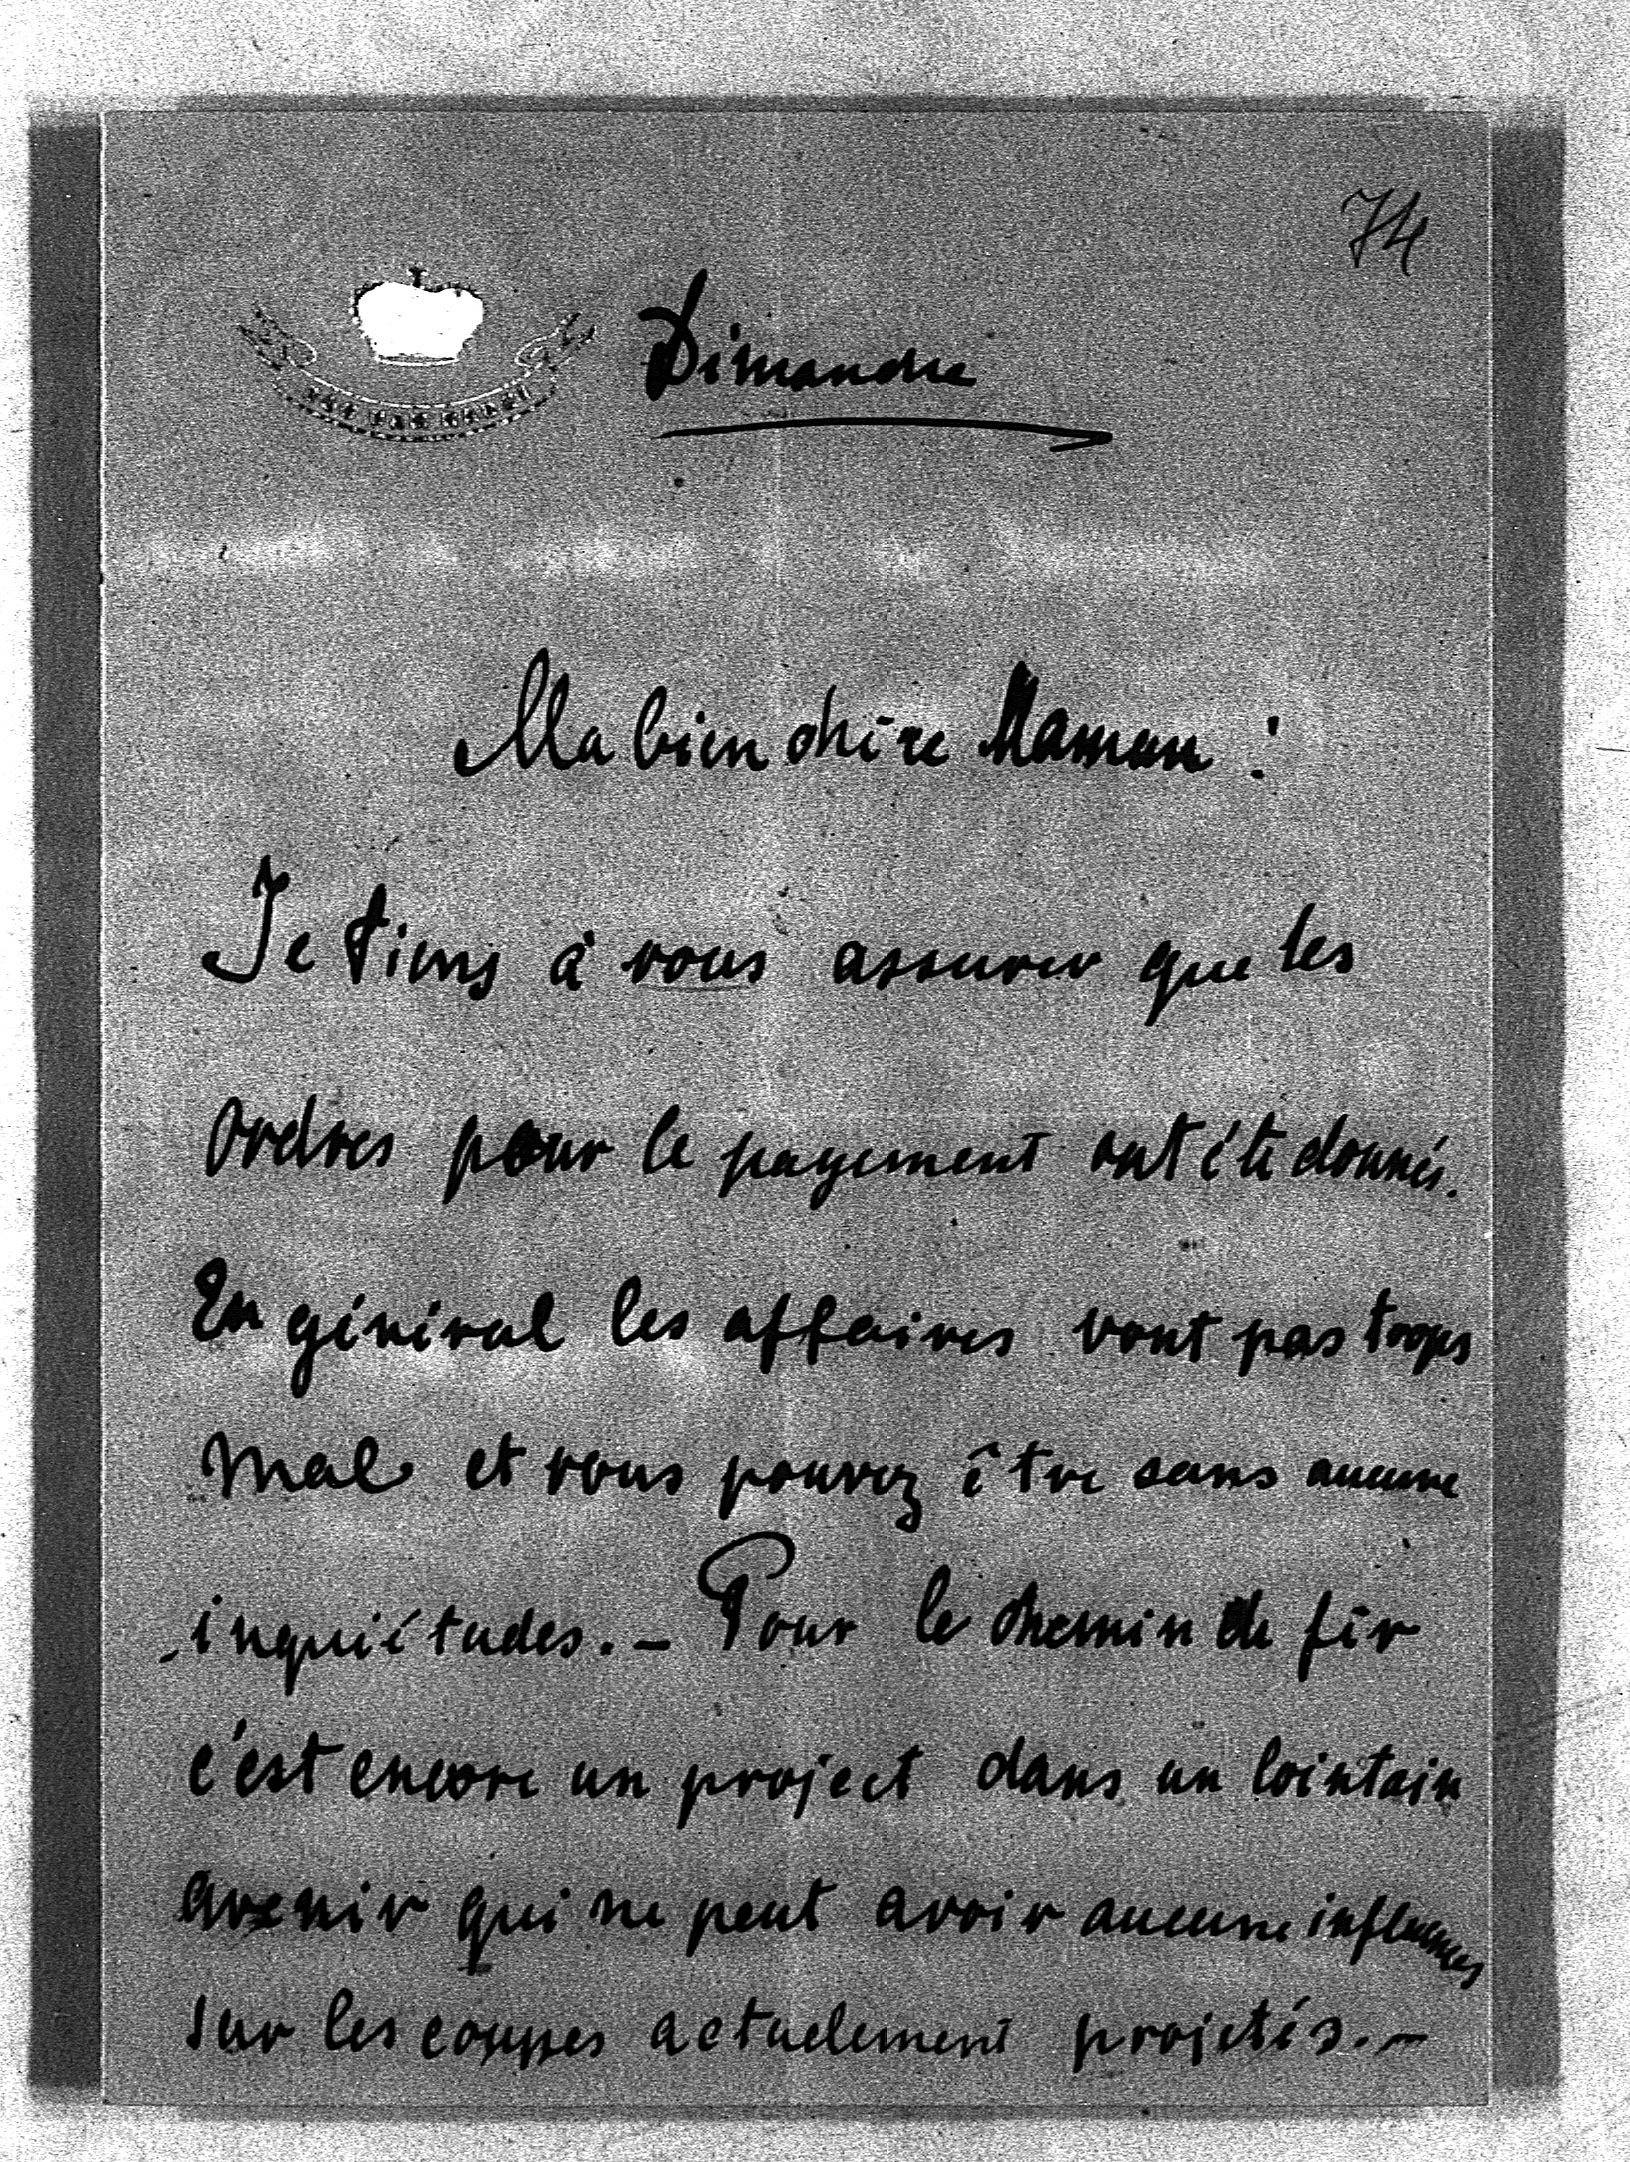 74
Dimanche
Ma bien chère Maman :
Je tiens à vous assurer que les
ordres pour le payement ont été donnés.
En général les affaires vont pas trops
mal et vous pouvez être sans aucune
inquiétudes. – Pour le chemin de fèr
c'est encore un project dans un lointain
avenir qui ne peut avoir aucune influences
sur les coupes actuelement projetés. –